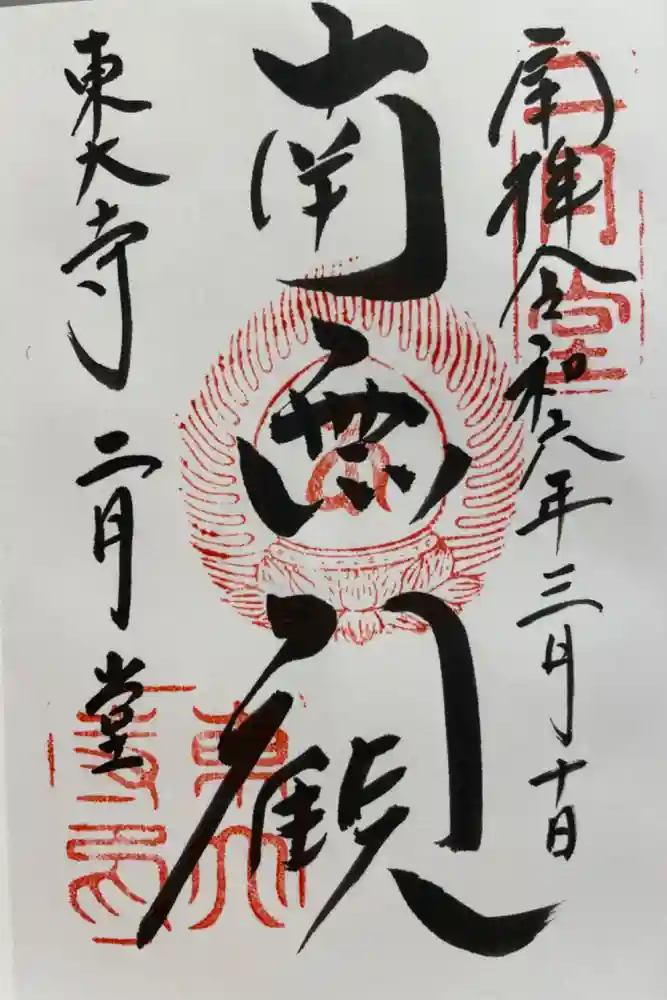 奉拝 令和六年三月十日
二月堂
南無観
東大寺 二月堂